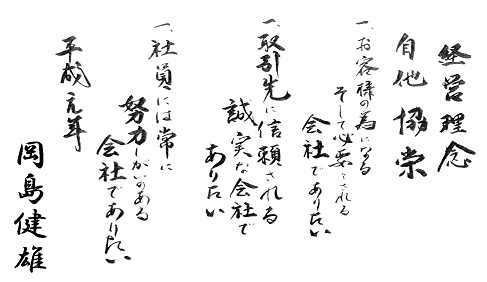 経営理念
自他協栄
一、お客様の為になる
そして必要とされる
会社でありたい
一、取引先に信頼される
誠実な会社で
ありたい
一、社員には常に
努力しがいのある
会社でありたい
平成元年
岡島健雄